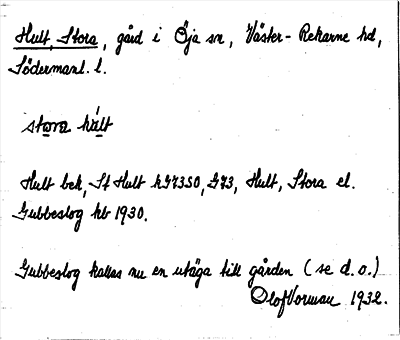 Hult, Stora, gård i Öja sn, Väster-Rekarne hd,
Södermanl. l.
stora hult
Hult bek, St Hult hG7350, G73, Hult, Stora el.
Gubbeslog hb 1930.
Gubbeslog kallas nu en utäga till gården (se d. o.)
Olof Vorman 1932.